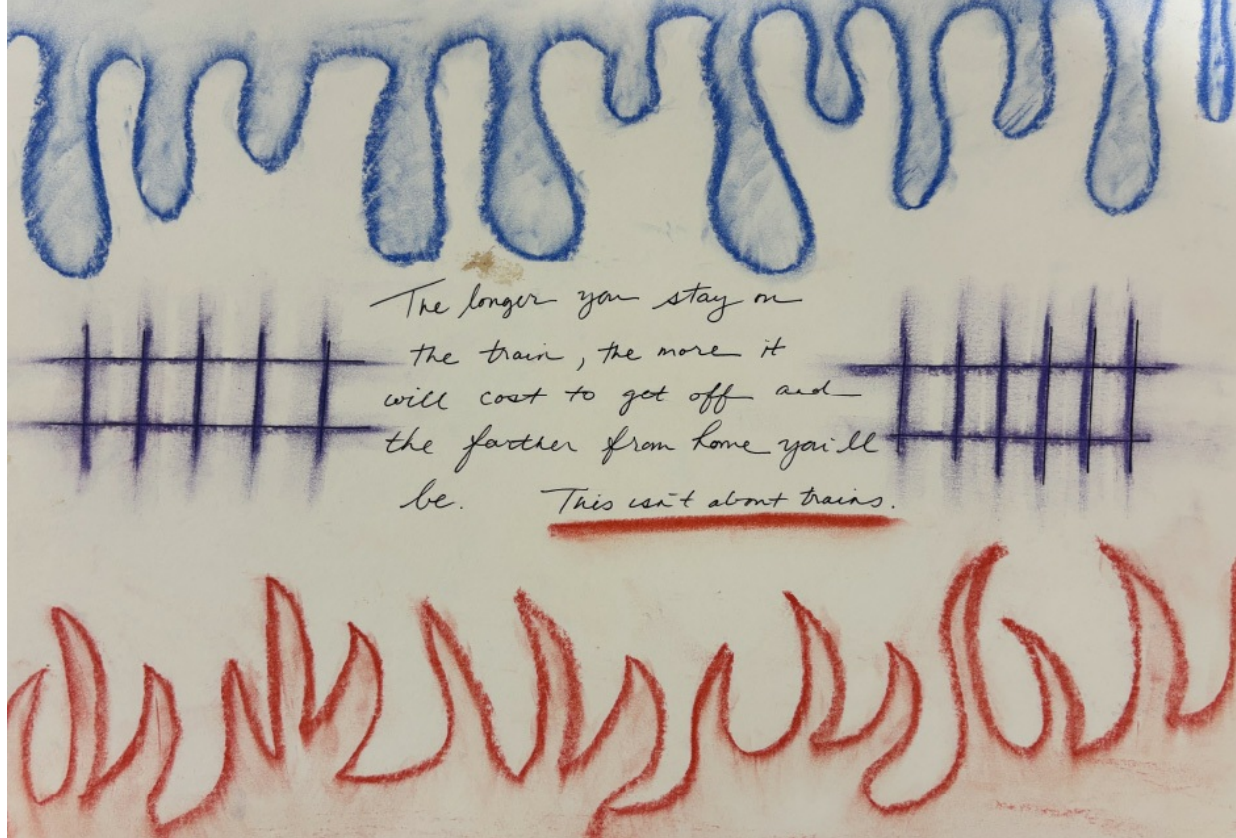 The longer you stay on
the train, the more it
will cost to get off and
the farther from home you'll
be. This isn't about trains.